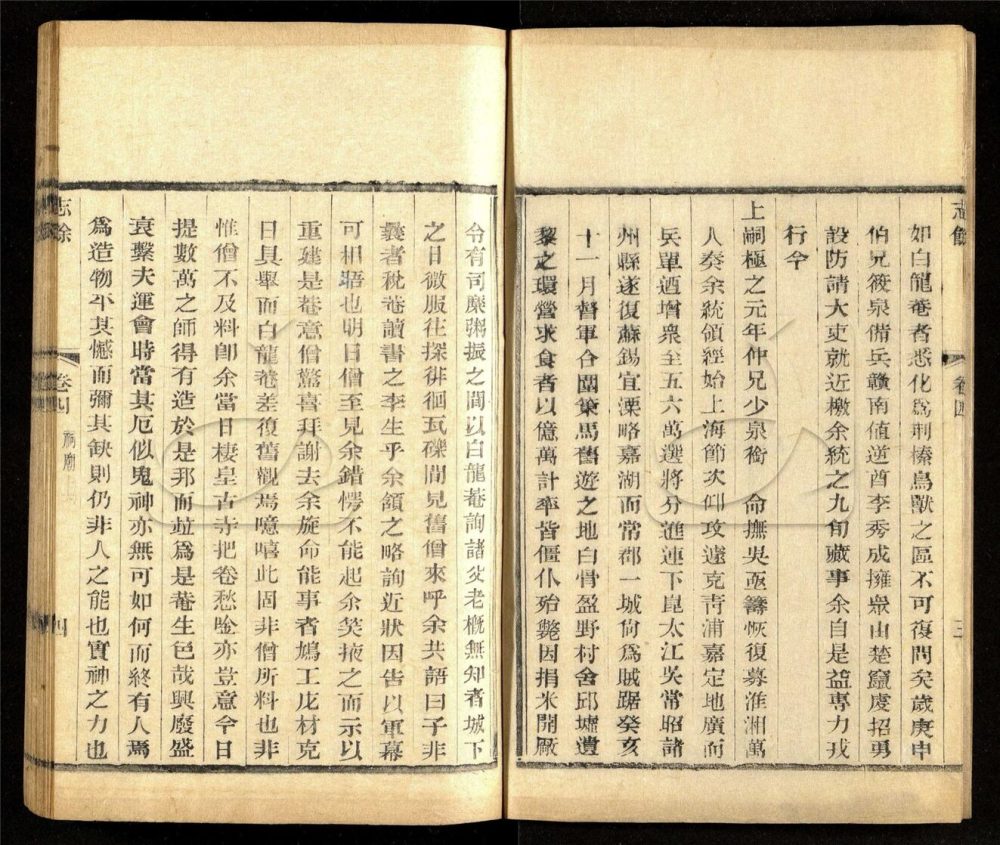 志餘
卷四
三
如白龍菴者悉化爲荆榛鳥獸之區不可復問矣歲庚申
伯兄筱泉備兵贛南値逆酋李秀成擁衆由楚竄虔招勇
設防請大吏就近檄余統之九旬蕆事余自是益專力戎
行今
上嗣極之元年仲兄少泉銜 命撫吳亟籌恢復募淮湘萬
人奏余統領經始上海節次仰攻遽克青浦嘉定地廣而
兵單迺增衆至五六萬選將分進連下崑太江吳常昭諸
州縣遂復蘇錫宜溧略嘉湖而常郡一城尙爲賊踞癸亥
十一月督軍合圍策馬舊遊之地白骨盈野村舍邱墟遺
黎之環營求食者以億萬計率皆僵仆殆斃因捐米開厰
令有司糜粥振之間以白龍菴詢諸父老槪無知者城下
之日微服往探徘徊瓦礫間見舊僧來呼余共語曰子非
曩者稅菴讀書之李生乎余頷之略詢近狀因告以軍幕
可相晤也明日僧至見余錯愕不能起余笑掖之而示以
重建是菴意僧驚喜拜謝去余旋命能事者鳩工庀材克
日具舉而白龍菴差復舊觀焉噫嘻此固非僧所料也非
惟僧不及料卽余當日棲皇古寺把卷愁唫亦豈意今日
提數萬之師得有造於是邦而竝爲是菴生色哉興廢盛
衰繫夫運會時當其厄似鬼神亦無可如何而終有人焉
爲造物平其憾而彌其缺則仍非人之能也實神之力也
志餘
卷四
祠廟
四